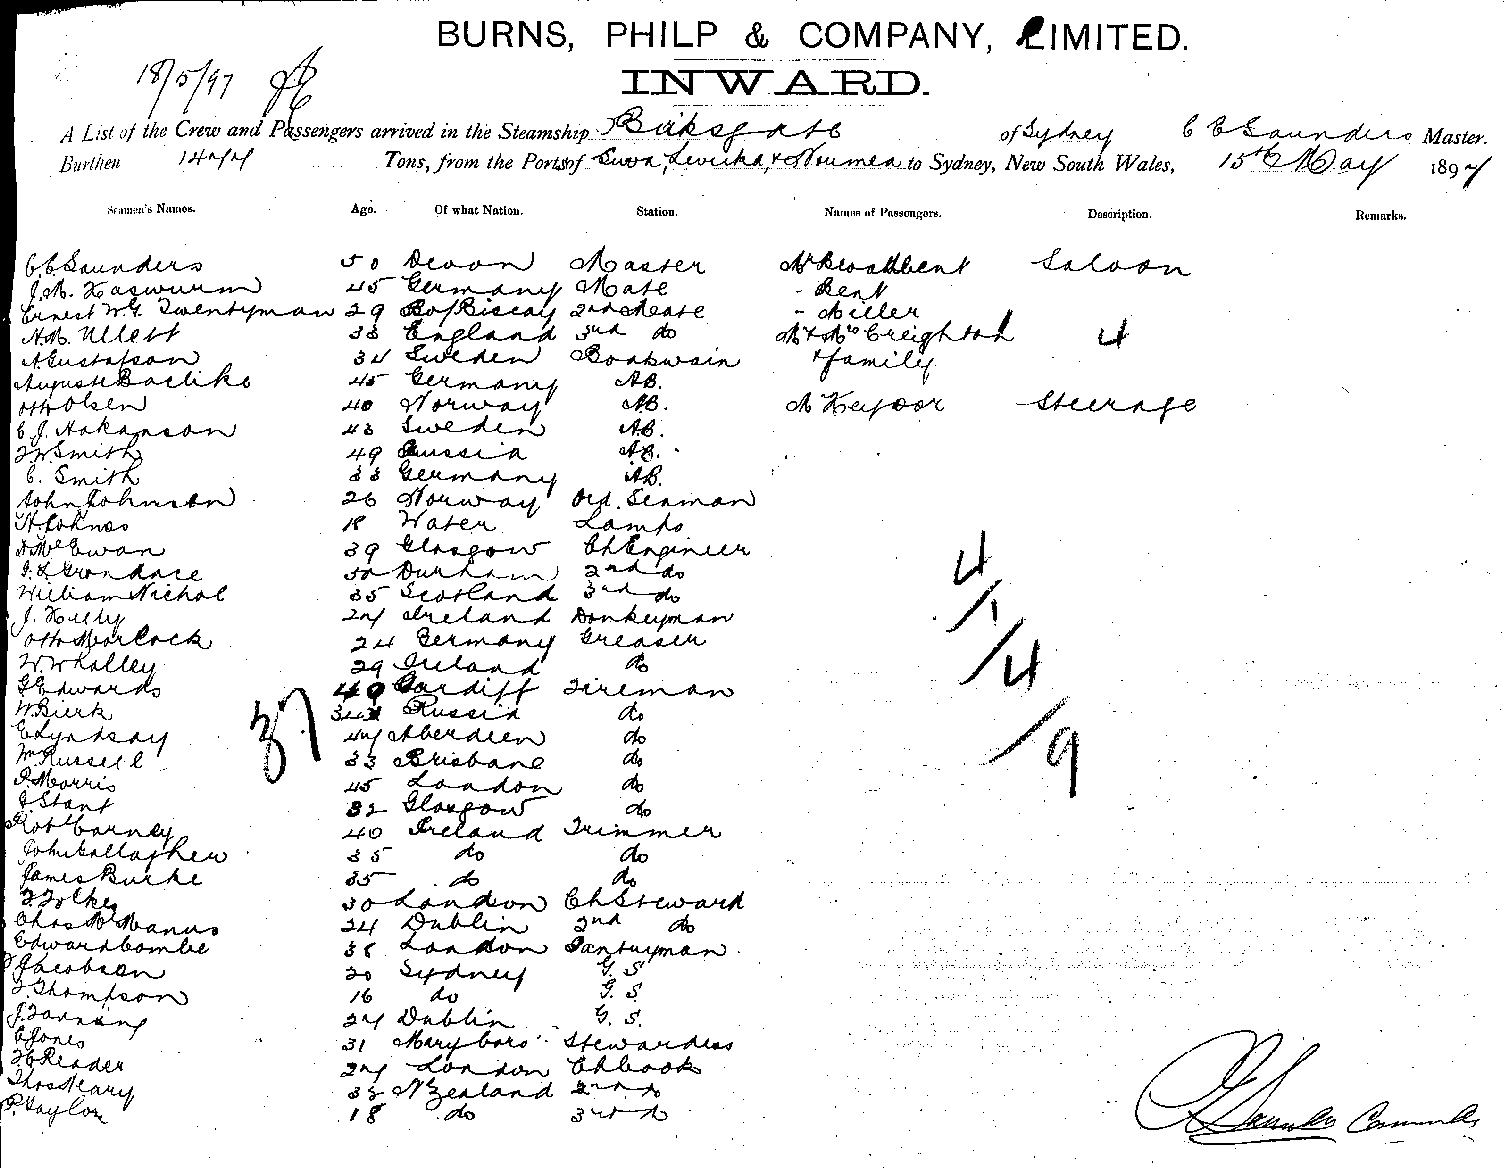 BURNS, PHILP & COMPANY, LIMITED.
18/5/97
INWARD.
A List of the Crew and Passengers arrived in the Steamship Birksgate of Sydney C C Saunders Master.
Burthen 1477 Tons, from the Ports of Suva, Levuka, & Noumea to Sydney, New South Wales, 15th May 1897
Seamen's Names. Age. Of what Nation. Station. Names of Passengers. Description. Remarks.
C.C. Saunders 50 Devon Master Mr Broadbent Saloon
J.M. Haswurm 45 Germany Mate - Bent
Ernest W.G. Twentyman 29 B of Biscay 2nd Mate - Miller
A.M. Ullett 33 England 3rd do Mr & Mrs Creighton 4
A Gustafson 34 Sweden Boatswain & family
August 45 Germany AB.
Otto Olsen 40 Norway AB. Steerage
C.J. Hakanson 43 Sweden AB.
Smith 49 Russia AB.
C. Smith 33 Germany AB.
John Johnson 26 Norway Ord. Seaman
18 Water Lamps
McEwan 39 Glasgow Ch Engineer
50 Durham 2nd do
William Nichol 35 Scotland 3rd do
J. 27 Ireland Donkeyman
Otto 24 Germany Greaser
W Whalley 29 Ireland do
G Edwards 40 Cardiff Fireman
34 Russia do
E Lyndsay 47 Aberdeen do
Wm Russell 33 Brisbane do
P. Morris 45 London do
32 Glasgow do
Robt Carney 40 Ireland Trimmer
John Gallagher 35 do do
James Burke 35 do do
30 London Ch Steward
Chas McManus 24 Dublin 2nd do
Edward Combe 38 London Pantryman
Jacobson 20 Sydney G. S
Thompson 16 do G. S.
J. Fanning 27 Dublin G. S.
C Jones 31 Maryboro Stewardess
Reader 27 London Ch Cook
Thos Neary 33 N Zealand 2nd do
P. Taylor 18 do 3rd do
37
4/1/4/9
C C Saunders Commander